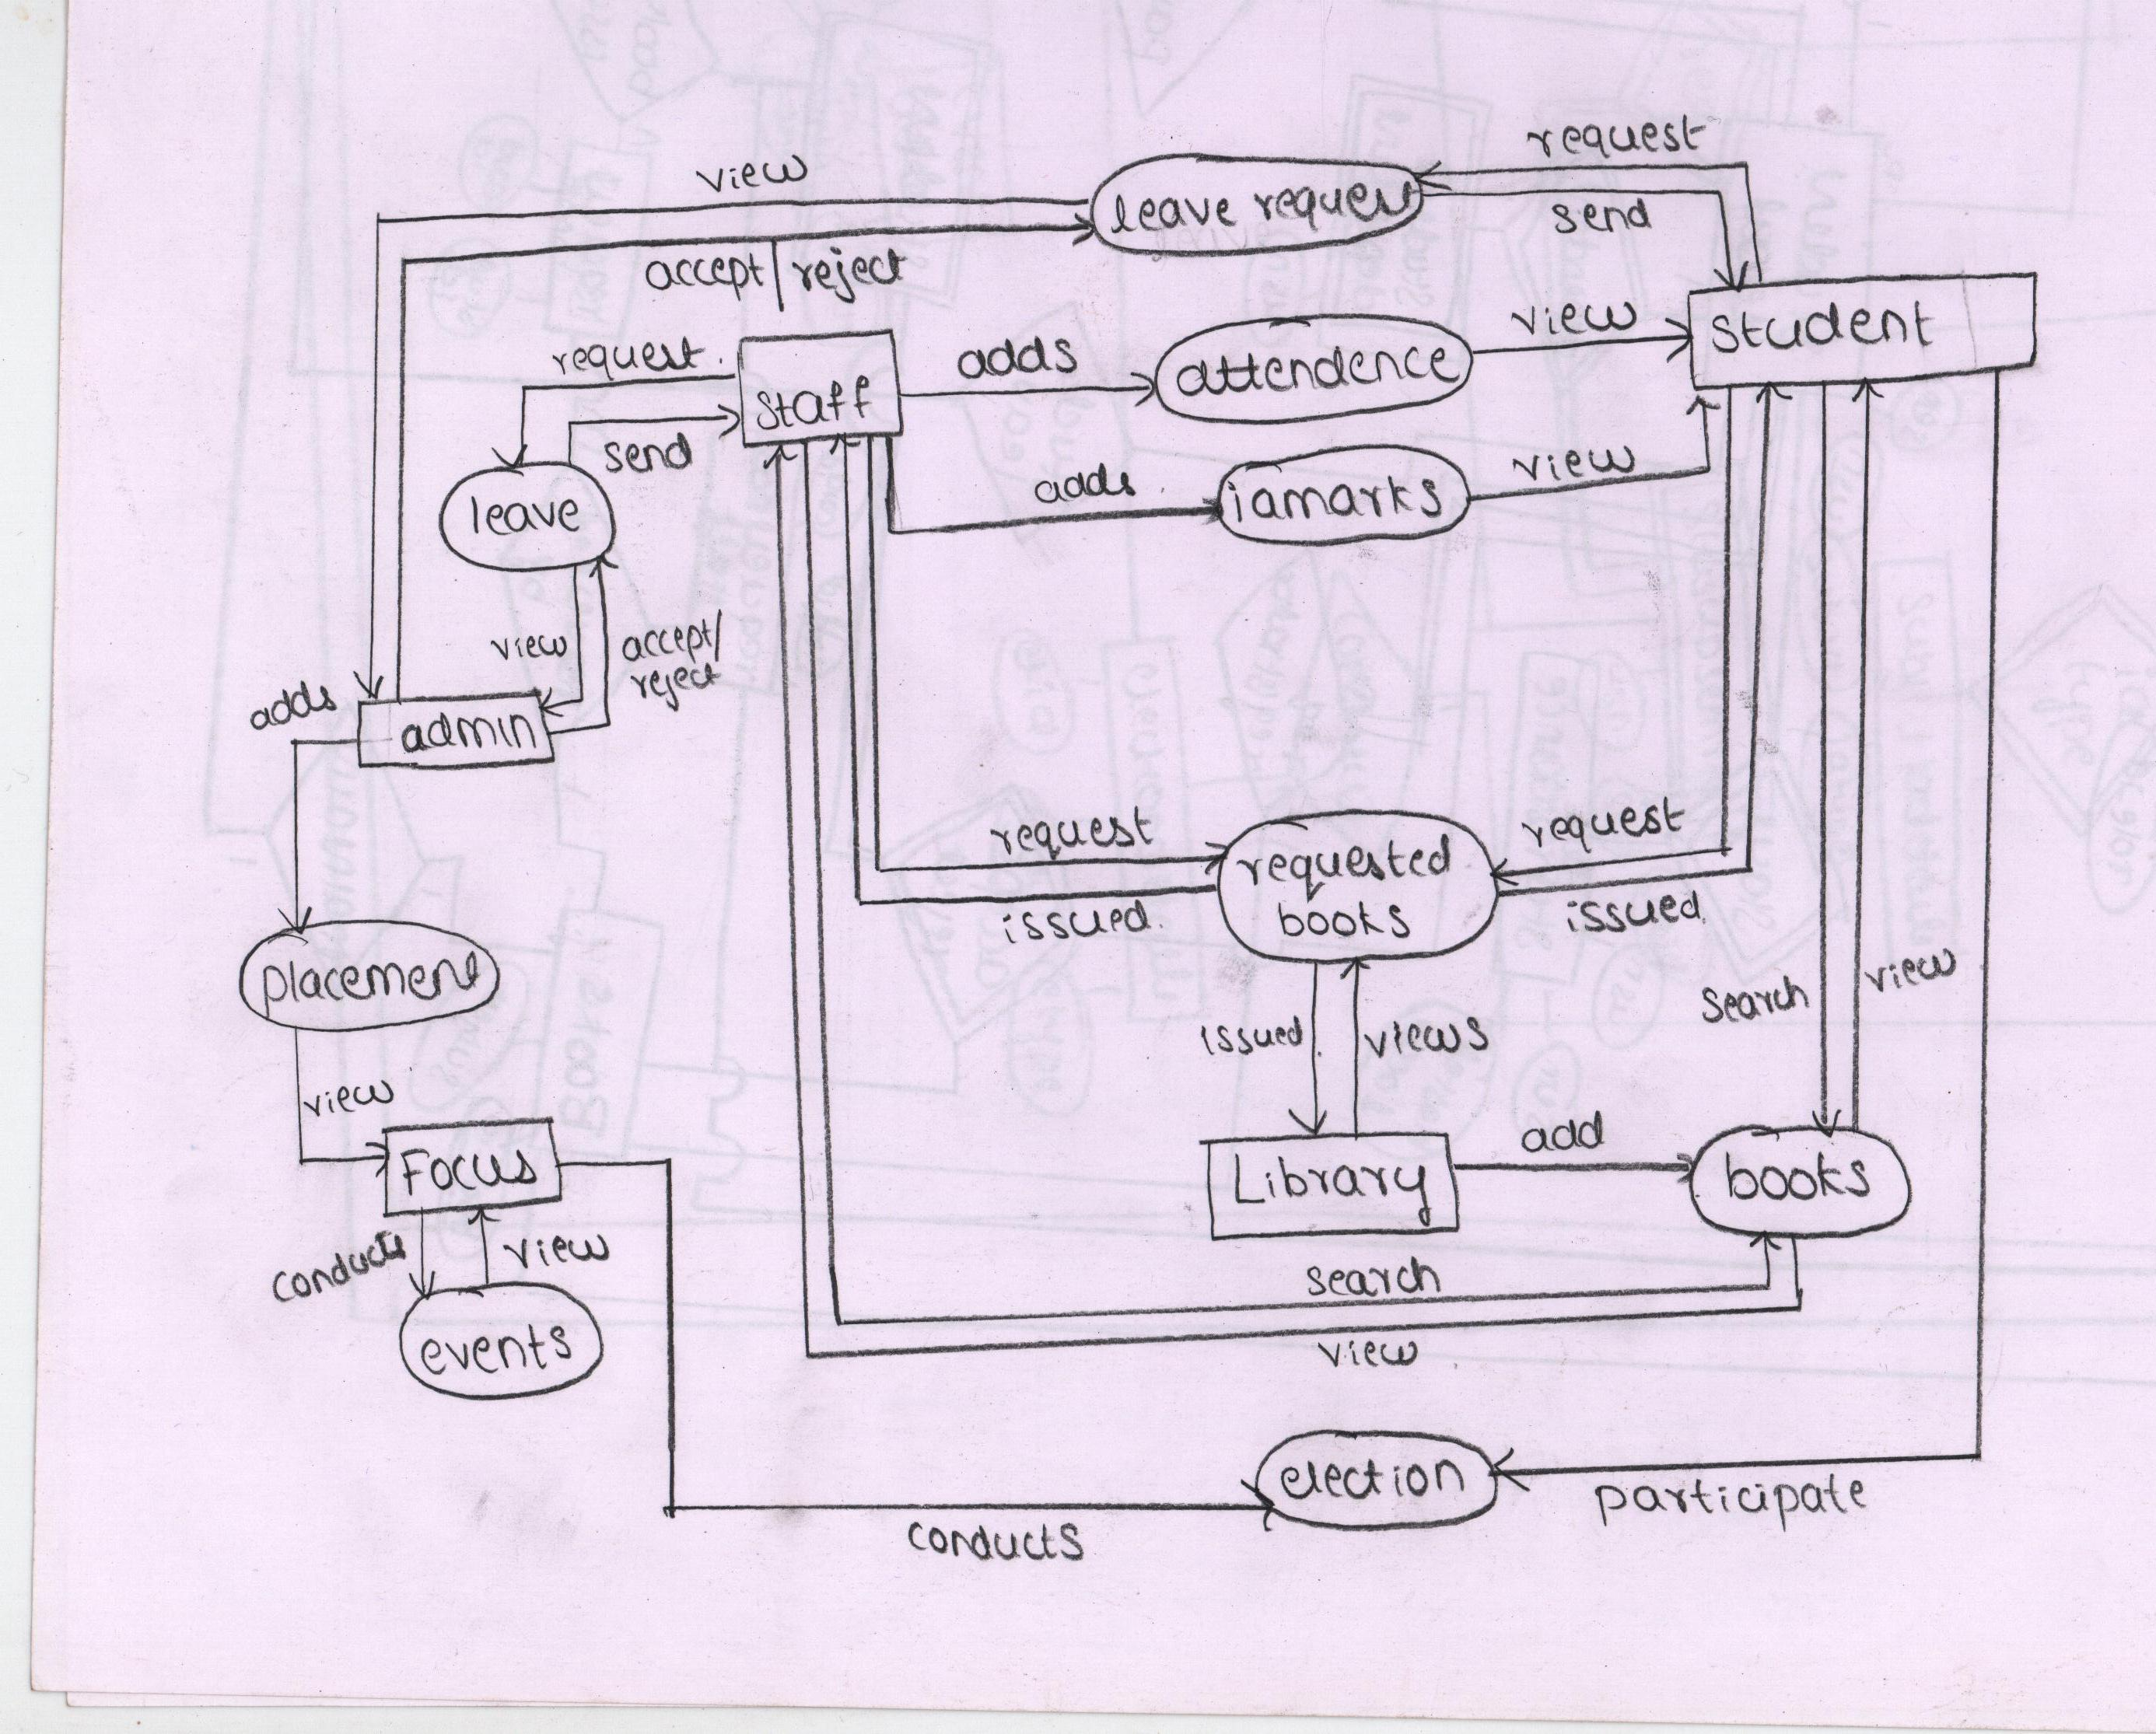 request
view
leave request
send
accept/reject
student
view
request.
adds
attendence
staff
send
adds
iamarks
view
leave
view
accept/
reject
adds
admin
request
requested
books
request
issued.
issued
placement
search
view
issued.
views
view
Focus
Library
add
books
conducts
view
search
events
view
election
participate
conducts